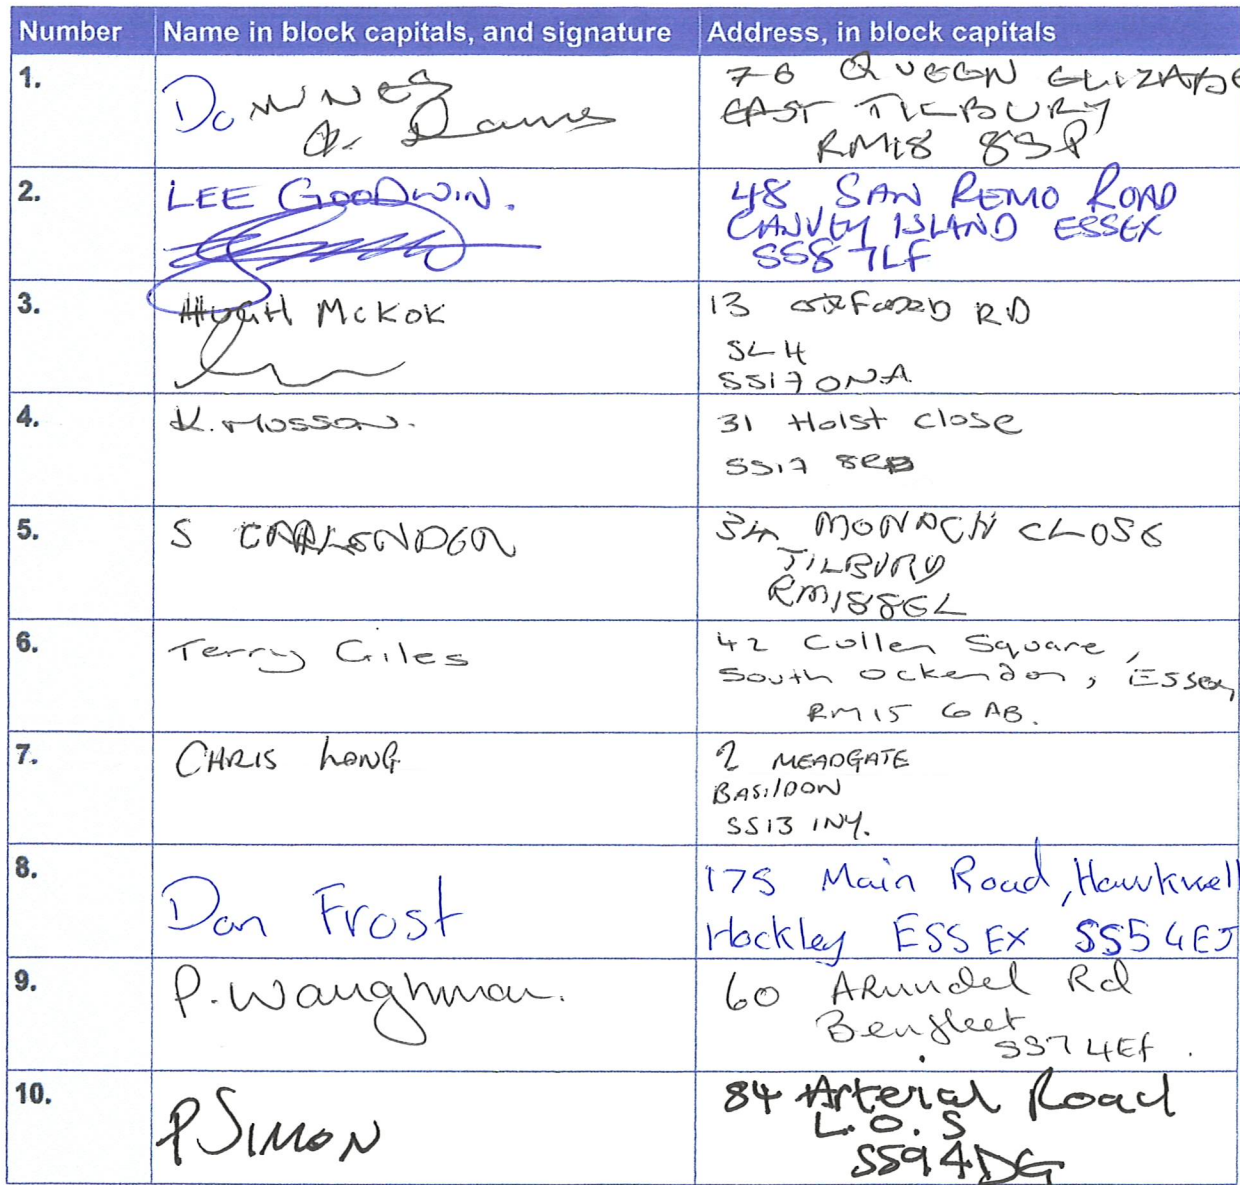 Number Name in block capitals, and signature Address, in block capitals
1.
76 QUEEN ELIZABE
EAST TILBURY
RM18 8SP
2.
LEE GOODWIN.
48 SAN REMO ROAD
CANVEY ISLAND ESSEX
SS8 7LF
3.
HUGH McKOK
13 RD
SLH
SS17 0NA
4.
K. Mosson.
31 Holst close
SS17
5.
S
34 MONACH CLOSE
TILBURY
RM18 8EL
6.
Terry Giles
42 Cullen Square,
South Ockendon, Essex,
RM15 6AB.
7.
CHRIS LONG
2 MEADGATE
BASILDON
SS13 1NY.
8.
Dan Frost
175 Main Road, Hawkwell
Hockley ESSEX SS5 4EJ
9.
P. Waughman.
60 Arundel Rd
Benfleet
SS7 4EF.
10.
P SIMON
84 Arterial Road
L.O.S
SS9 4DG